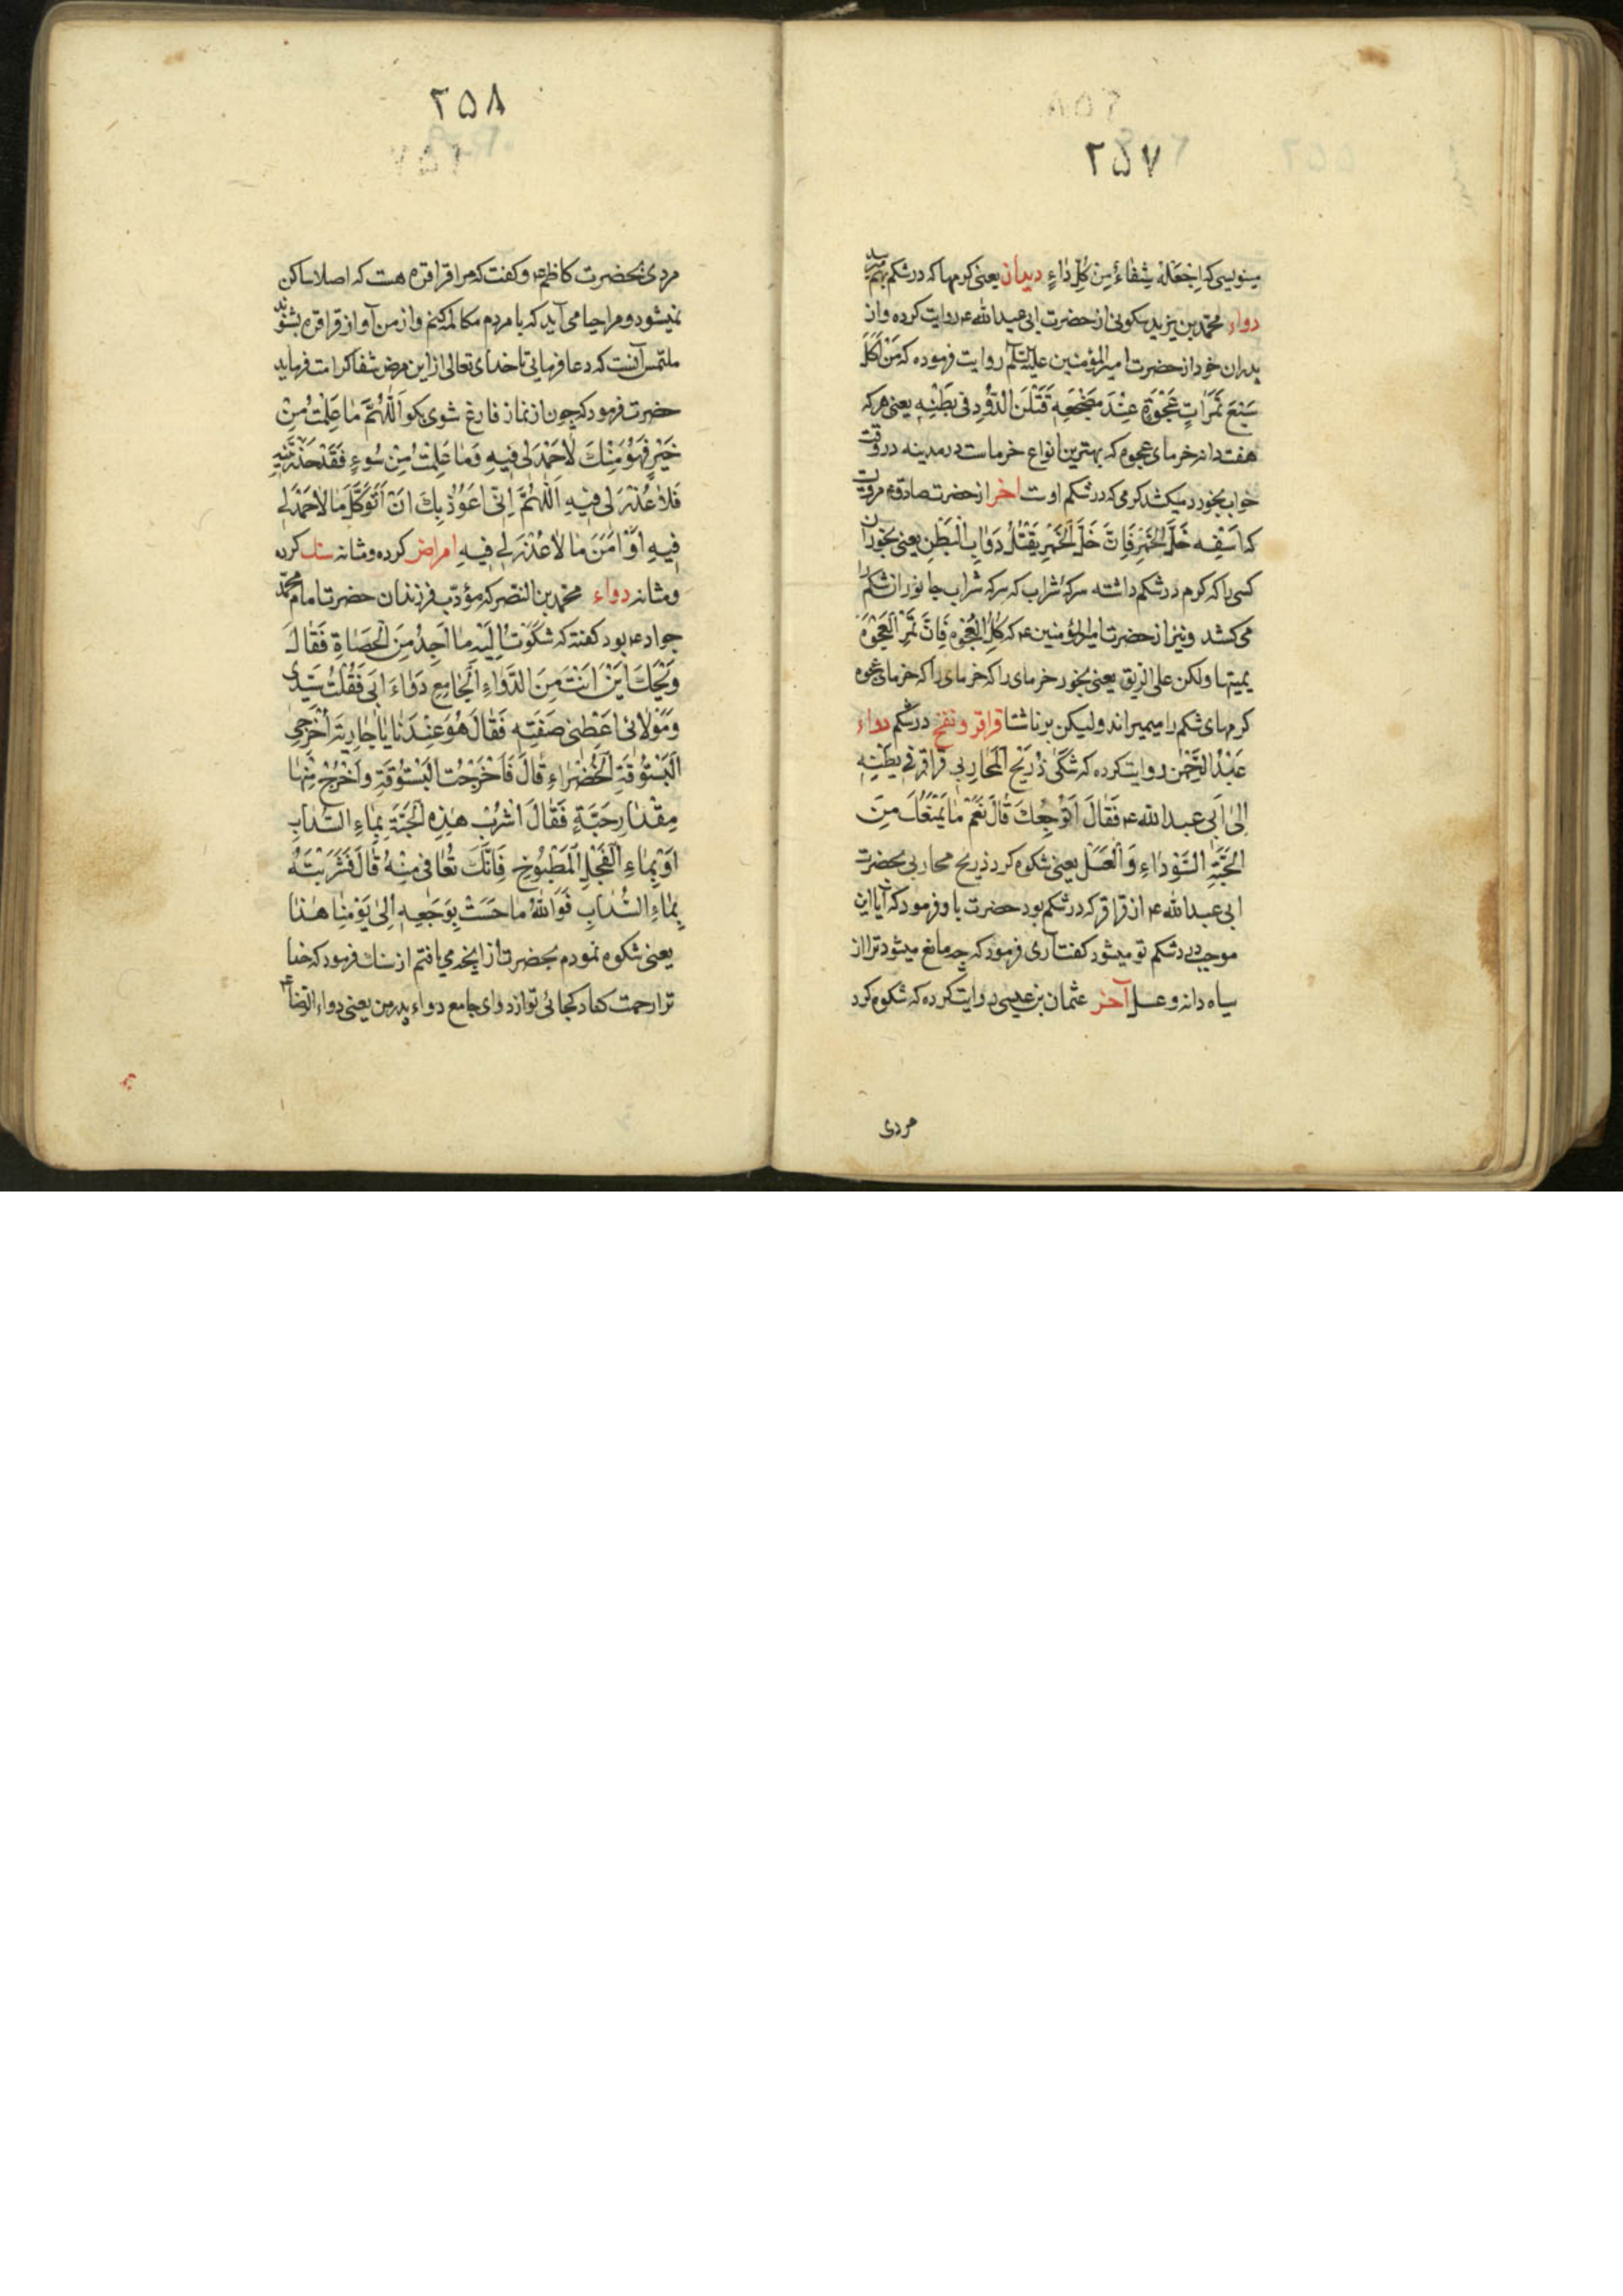 ۲۵۷
مینویسی که اِجْعَلْهُ شِفٰاءً مِنْ کُلِّ دٰاءٍ دیدان یعنی کرمها که در شکم بهم رسد
دواء محمّد بن یزید سکونی از حضرت ابی عبد الله ع روایت کرده و از
پدران خود از حضرت امیر المؤمنین علیه السلام روایت فرموده که مَنْ اَکَلَ
سَبْعَ تَمَرٰاتٍ عَجْوَةٍ عِنْدَ مَضْجَعِهِ قَتَلْنَ الدُّودِ فی بَطْنِهِ یعنی هر که
هفت دانه خرمای عجوه که بهترین انواع خرماست در مدینه در وقت
خواب بخورد میکشد کرمی که در شکم اوست اخر از حضرت صادق ع مرویست
که اَسْقِهِ خَلَّ الْخَمْرِ فَاِنَّ خَلَّ الْخَمْرِ یَقْتُلُ دَوٰابَ الْبَطْنِ یعنی بخوران
کسی را که کرم در شکم داشته سرکهٔ شراب که سرکه شراب جانوران شکم را
می کشد و نیز از حضرت امیر المؤمنین ع که کُلِ الْعَجْوَه فَاِنَّ تَمْرَ الْعَجْوَةِ
یمیتها ولکن علی الریق یعنی بخور خرمای را که خرمای را که خرمای عجوه
کرمهای شکم را میمیراند ولیکن بر ناشتا قراقر و نفخ در شکم دواء
عَبْدُ الرَّحْمٰن روایت کرده که شَکٰی ذُرَیْحُ الْمَحٰارِبی قَرٰاقِرَ فی بَطْنِهِ
اِلٰی اَبی عبد الله ع فَقٰالَ اَتُوجِعُکَ قٰالَ نَعَمْ مٰا یَمْنَعُکَ مِنَ
الْحَبَّةِ السَّوْدٰاءِ وَ الْعَسَل یعنی شکوه کرد ذریح محاربی بحضرت
ابی عبد الله ع از قراقر که در شکم بود حضرت باو فرمود که آیا این
موجب درد شکم تو میشود کفت آری فرمود که چه مانع میشود ترا از
سیاه دانه و عسل آخر عثمان بن عیسی روایت کرده که شکوه کرد
مردی
۲۵۸
مردی بحضرت کاظم ع و کفت که مرا قراقره هست که اصلا ساکن
نمیشود و مرا حیا می آید که با مردم مکالمه کنم و از من آواز قراقره بشنوند
ملتمس آنست که دعا فرمائی تا خدای تعالی از این مرض شفا کرامت فرماید
حضرت فرمود که چون از نماز فارغ شوی بکو اَللّٰهُمَّ مٰا عَلِمْتُ مِنْ
خَیْرٍ فَهُوَ مِنْکَ لٰا حَمْدَ لی فیهِ وَ مٰا عَلِمْتُ مِنْ سُوءٍ فَقَدْ حَذَّرْتَنیهِ
فَلٰا عُذْرَ لی فیهِ اَللّٰهُمَّ اِنّی اَعُوذُ بِکَ اَنْ اَتَوَکَّلَ مٰا لٰا حَمْدَ لی
فیهِ اَوْ اٰمَنَ مٰا لٰا عُذْرَ لی فیهِ امراض کرده و مثانه سنک کرده
و مثانه دواء محمّد بن النّصر که مؤدّب فرزندان حضرت امام محمّد
جواد ع بود کفته که شَکَوْتُ اِلَیْهِ مٰا اَجِدُ مِنَ الْحَصٰاةِ فَقٰالَ
وَیْحَکَ اَیْنَ اَنْتَ مِنَ الدَّوٰاءِ الْجٰامِعِ دَوٰاءَ اَبی فَقُلْتُ سَیِّدی
وَ مَوْلٰائی اَعْطِنی صِفَتِهِ فَقٰالَ هُوَ عِنْدَنٰا یٰا جٰارِیَةُ اَخْرِجی
الْبَسْتُوقَةِ الْخَضْرٰاءِ قٰالَ فَاَخْرَجْتُ الْبَسْتُوقَةِ وَ اَخْرَجَ مِنْهٰا
مِقْدٰارَ حَبَّةٍ فَقٰالَ اشْرَبْ هٰذِهِ الْحَبَّةَ بِمٰاءِ السُّدٰابِ
اَوْ بِمٰاءِ الْفِجْلِ الْمَطْبُوخِ فَاِنَّکَ تُعٰافی مِنْهُ قٰالَ فَشَرِبْتُهُ
بِمٰاءِ السُّدٰابِ فَوَاللّٰهُ مٰا حَسَسْتُ بِوَجَعِهِ اِلٰی یَوْمِنٰا هٰذٰا
یعنی شکوه نمودم بحضرت از آنچه می یافتم از سنک فرمود که خدا
ترا رحمت کناد کجائی تو از دوای جامع دواء پدر من یعنی دواء الرّضا ع